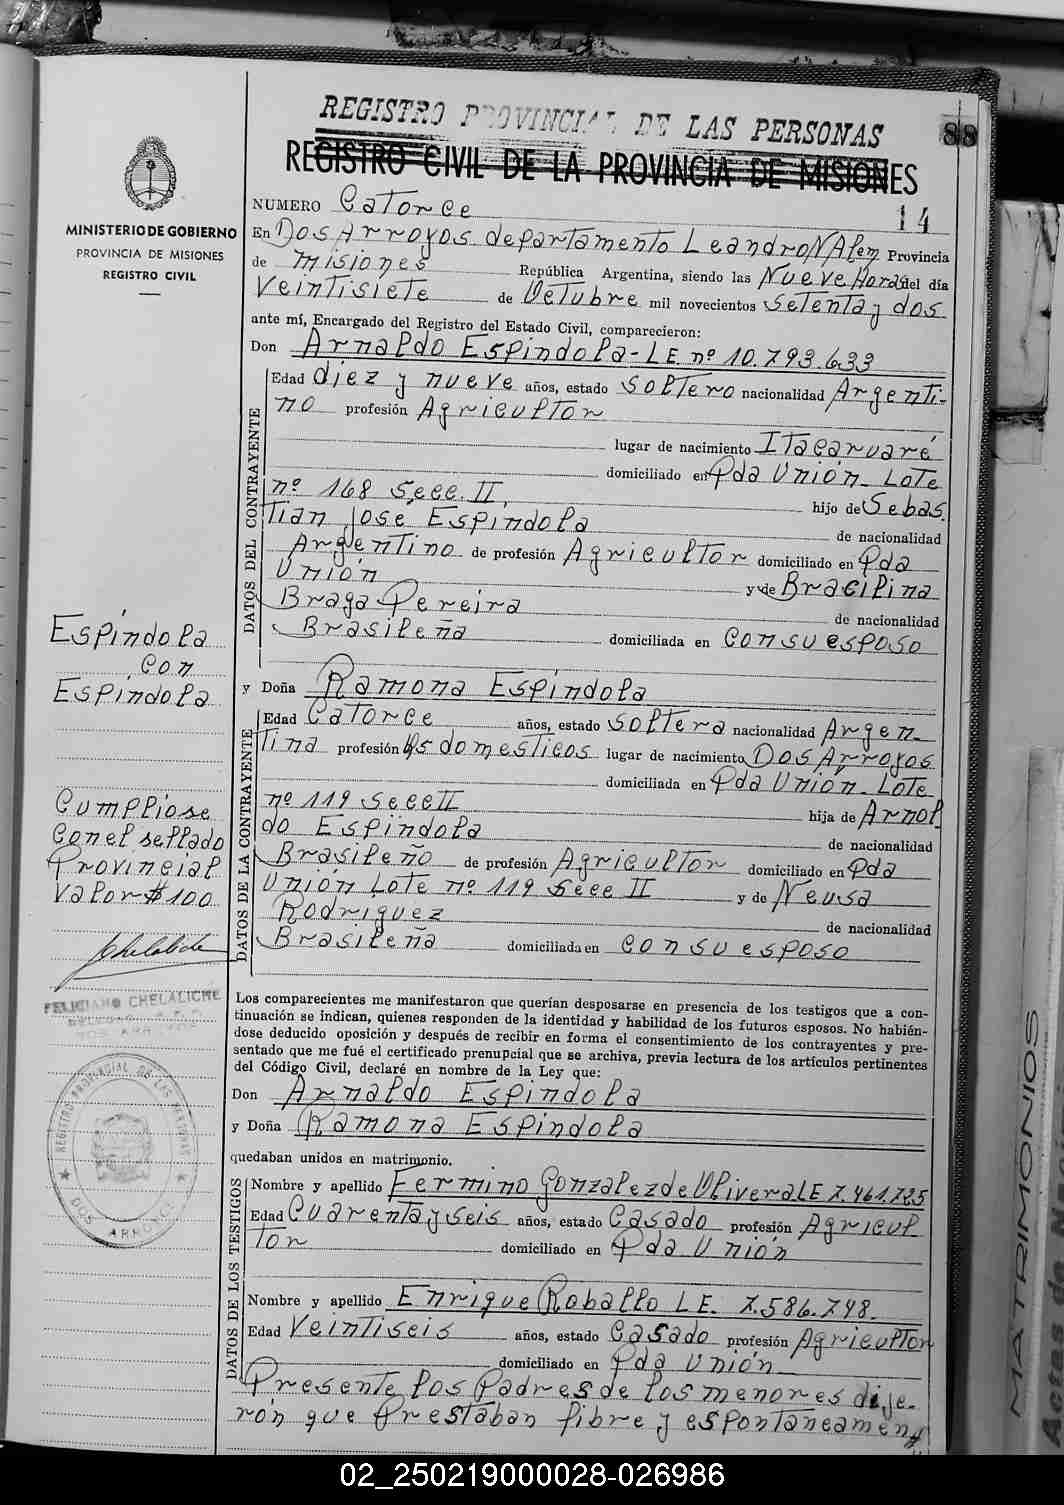 REGISTRO PROVINCIAL DE LAS PERSONAS
88
REGISTRO CIVIL DE LA PROVINCIA DE MISIONES
MINISTERIO DE GOBIERNO
PROVINCIA DE MISIONES
REGISTRO CIVIL
14
NUMERO Catorce
En Dos Arroyos departamento Leandro N Alem Provincia
de Misiones República Argentina, siendo las Nueve Horas del día
Veintisiete de Octubre mil novecientos setenta y dos
ante mí, Encargado del Registro del Estado Civil, comparecieron:
Don Arnaldo Espindola - LE. nº 10.793.633
DATOS DEL CONTRAYENTE
Edad diez y nueve años, estado soltero nacionalidad Argenti-
no profesión Agricultor
lugar de nacimiento Itacaruaré
domiciliado en Pda Unión - Lote
nº 168 Secc. II, hijo de Sebas.
tian José Espindola de nacionalidad
Argentino de profesión Agricultor domiciliado en Pda
Unión y de Bracilina
Braga Pereira de nacionalidad
Brasileña domiciliada en con su esposo
Espíndola
con
Espíndola
y Doña Ramona Espíndola
DATOS DE LA CONTRAYENTE
Edad Catorce años, estado soltera nacionalidad Argen-
tina profesión Qs domesticos lugar de nacimiento Dos Arroyos
domiciliada en Pda Unión - Lote
nº 119 Secc II hija de Arnol.
do Espindola de nacionalidad
Brasileño de profesión Agricultor domiciliado en Pda
Unión Lote nº 119 Secc II y de Neusa
Rodriguez de nacionalidad
Brasileña domiciliada en con su esposo
Cumpliose
con el sellado
Provincial
Valor $ 100
FELICIANO CHELALICHE
Los comparecientes me manifestaron que querían desposarse en presencia de los testigos que a con-
tinuación se indican, quienes responden de la identidad y habilidad de los futuros esposos. No habién-
dose deducido oposición y después de recibir en forma el consentimiento de los contrayentes y pre-
sentado que me fué el certificado prenupcial que se archiva, previa lectura de los artículos pertinentes
del Código Civil, declaré en nombre de la Ley que:
Don Arnaldo Espindola
y Doña Ramona Espindola
quedaban unidos en matrimonio.
REGISTRO PROVINCIAL DE LAS PERSONAS
DOS ARROYOS
DATOS DE LOS TESTIGOS
Nombre y apellido Fermino Gonzalez de Olivera LE 7.461.725
Edad Cuarenta y seis años, estado Casado profesión Agricul
tor domiciliado en Pda Unión
Nombre y apellido Enrique Roballo LE. 7.586.748.
Edad Veintiseis años, estado Casado profesión Agricultor
domiciliado en Pda Unión
Presente los Padres de los menores dije-
rón que Prestaban libre y espontaneamen
MATRIMONIOS
02_250219000028-026986